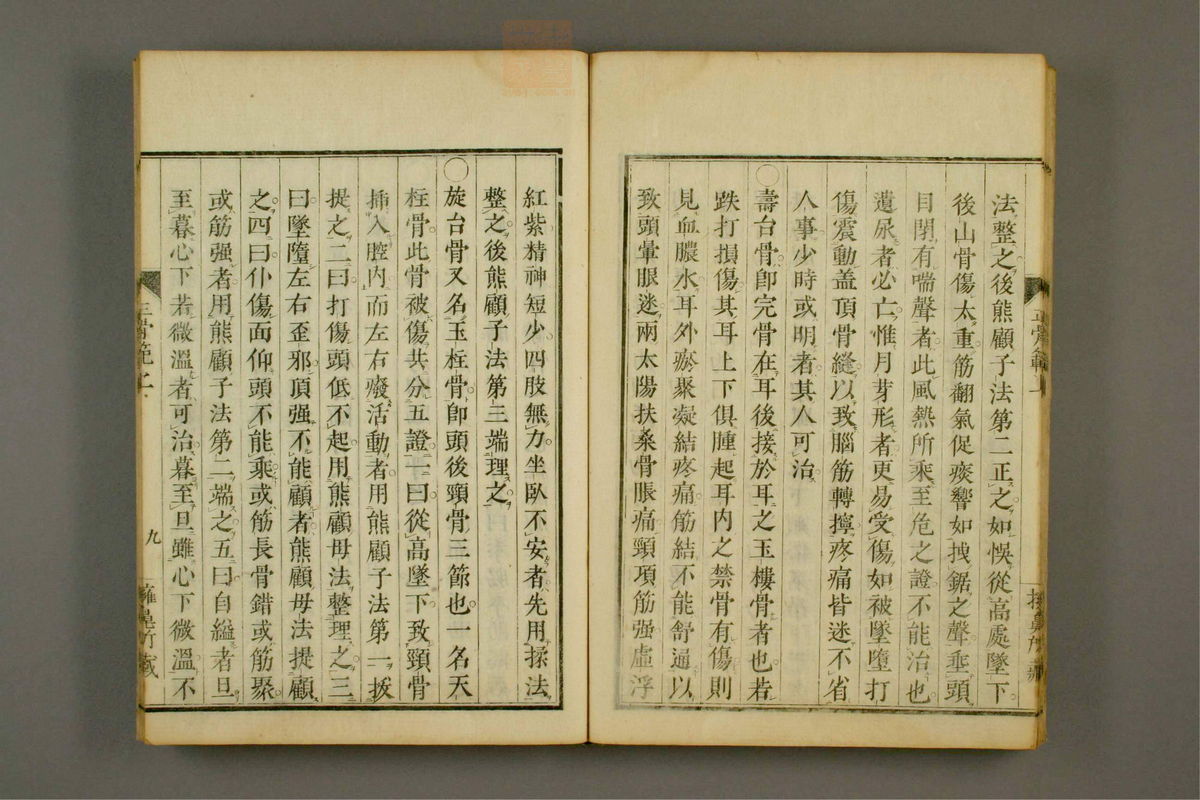 法整之後熊顧子法第二正之如悞從高處墜下
後山骨傷太重筋翻氣促痰響如拽鋸之聲垂頭
目閉有喘聲者此風熱所乘至危之證不能治也
遺尿者必亡惟月芽形者更易受傷如被墜墮打
傷震動盖頂骨縫以致腦筋轉擰疼痛皆迷不省
人事少時或明者其人可治
〇壽台骨卽完骨在耳後接於耳之玉樓骨者也若
跌打損傷其耳上下俱腫起耳內之禁骨有傷則
見血膿水耳外瘀聚凝結疼痛筋結不能舒通以
致頭暈眼迷兩太陽扶桑骨脹痛頸項筋强虛浮
紅紫精神短少四肢無力坐臥不安者先用揉法
整之後熊顧子法第三端理之
〇旋台骨又名玉柱骨卽頭後頸骨三節也一名天
柱骨此骨被傷共分五證一曰從高墜下致頸骨
揷入腔內而左右癈活動者用熊顧子法第一拔
提之二曰打傷頭低不起用熊顧母法整理之三
曰墜墮左右歪邪頂强不能顧者熊顧母法提顧
之四曰仆傷面仰頭不能乘或筋長骨錯或筋聚
或筋强者用熊顧子法第二端之五曰自縊者旦
至暮心下若微溫者可治暮至旦雖心下微溫不
九